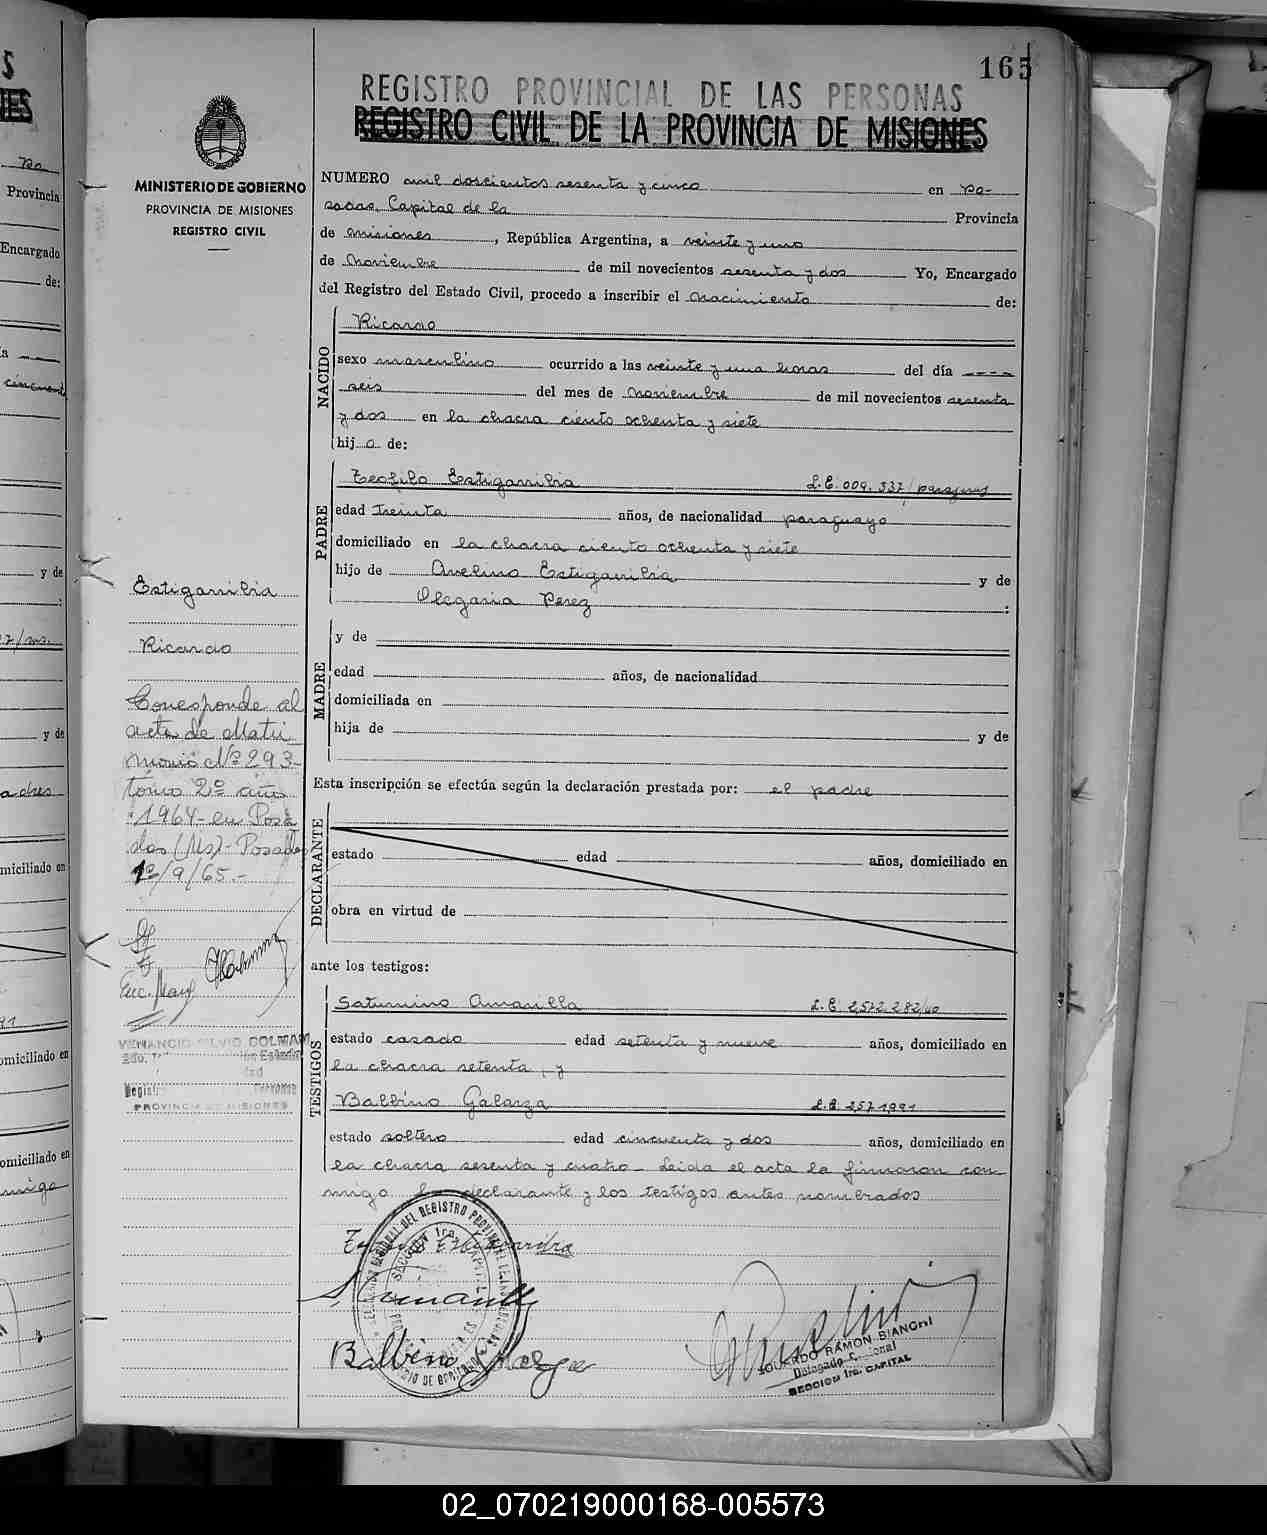 165
REGISTRO PROVINCIAL DE LAS PERSONAS
REGISTRO CIVIL DE LA PROVINCIA DE MISIONES
MINISTERIO DE GOBIERNO
PROVINCIA DE MISIONES
REGISTRO CIVIL
NUMERO mil doscientos sesenta y cinco en Po-
sadas, Capital de la Provincia
de Misiones, República Argentina, a veinte y uno
de Noviembre de mil novecientos sesenta y dos Yo, Encargado
del Registro del Estado Civil, procedo a inscribir el nacimiento de:
NACIDO
Ricardo
sexo masculino ocurrido a las veinte y una horas del día ----
seis del mes de Noviembre de mil novecientos sesenta
y dos en la chacra ciento ochenta y siete
hijo de:
PADRE
Teofilo Estigarribia L.E. 009.337/paraguay
edad Treinta años, de nacionalidad paraguayo
domiciliado en la chacra ciento ochenta y siete
hijo de Avelino Estigarribia y de
Olegaria Perez :
MADRE
y de
edad años, de nacionalidad
domiciliada en
hija de y de
Esta inscripción se efectúa según la declaración prestada por: el padre
DECLARANTE
estado edad años, domiciliado en
obra en virtud de
ante los testigos:
TESTIGOS
Saturnino Amarilla L.E. 2,572.282/40
estado casado edad setenta y nueve años, domiciliado en
la chacra setenta, y
Balbino Galarza L.E. 2571991
estado soltero edad cincuenta y dos años, domiciliado en
la chacra sesenta y cuatro - Leida el acta la firmaron con
migo declarante y los testigos antes nombrados
Estigarribia
S. Amarilla
Balbino
EDUARDO RAMON BIANCHI
Delegado Seccional
SECCION 1ra. CAPITAL
Estigarribia
Ricardo
Corresponde al
acta de Matri
monio Nº 293-
tomo 2º año
1964- en Posa
das (Ms)- Posadas
1º/9/65.-
Enc.
VENANCIO SILVIO COLMAN
PROVINCIA DE MISIONES
02_070219000168-005573